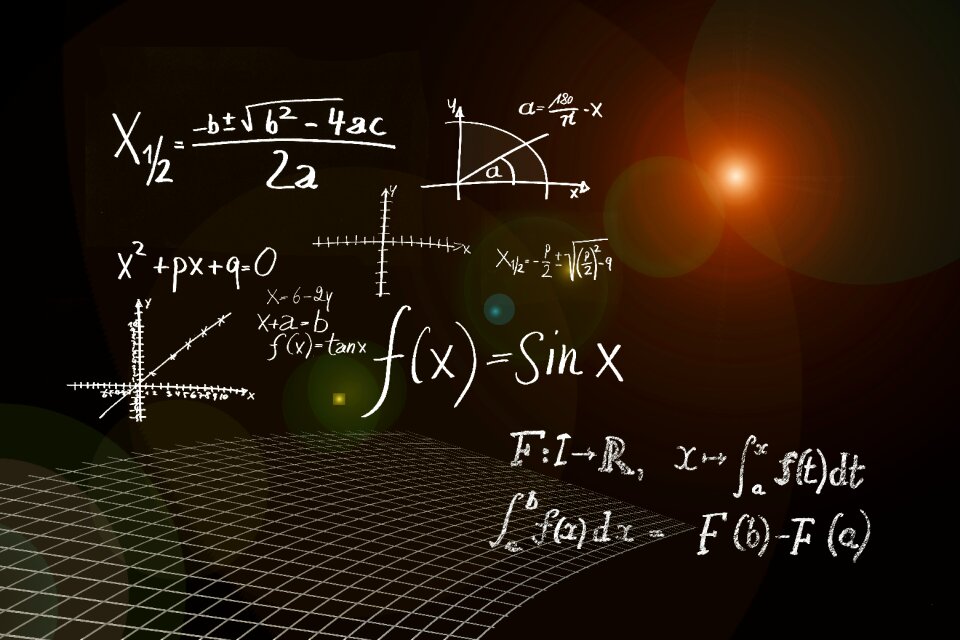 X₁/₂ = (-b ± √(b² - 4ac)) / 2a
y
a = 180/π - x
a
x
y
x
x² + px + q = 0
X₁/₂ = -p/2 ± √((p/2)² - q)
x = 6 - 2y
x + a = b
f(x) = tan x
f(x) = Sin x
y
x
F: I → ℝ, x ↦ ∫ₐˣ f(t)dt
∫ₐᵇ f(x)dx = F(b) - F(a)